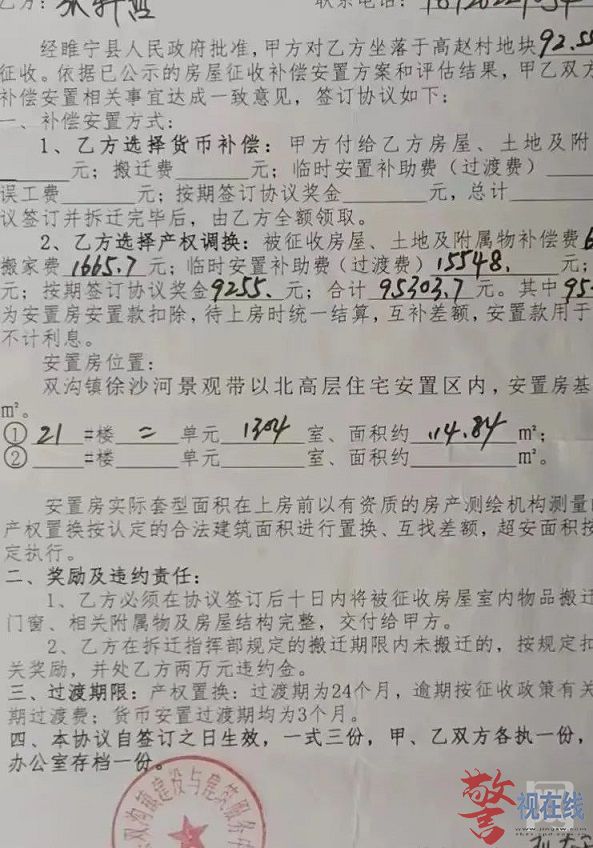 乙方：
联系电话：
经睢宁县人民政府批准，甲方对乙方坐落于高赵村地块92.55
征收。依据已公示的房屋征收补偿安置方案和评估结果，甲乙双方
补偿安置相关事宜达成一致意见，签订协议如下：
一、补偿安置方式：
1、乙方选择货币补偿：甲方付给乙方房屋、土地及附
元；搬迁费 元；临时安置补助费（过渡费）
误工费 元；按期签订协议奖金 元，总计
议签订并拆迁完毕后，由乙方全额领取。
2、乙方选择产权调换：被征收房屋、土地及附属物补偿费6
搬家费1665.7元；临时安置补助费（过渡费）15548.元；
元；按期签订协议奖金9255.元；合计95303.7元。其中95
为安置房安置款扣除，待上房时统一结算，互补差额，安置款用于
不计利息。
安置房位置：
双沟镇徐沙河景观带以北高层住宅安置区内，安置房基
m²。
①21#楼二单元1304室、面积约114.84m²；
② #楼 单元 室、面积约 m²。
安置房实际套型面积在上房前以有资质的房产测绘机构测量
产权置换按认定的合法建筑面积进行置换、互找差额，超安面积按
定执行。
二、奖励及违约责任：
1、乙方必须在协议签订后十日内将被征收房屋室内物品搬迁
门窗、相关附属物及房屋结构完整，交付给甲方。
2、乙方在拆迁指挥部规定的搬迁期限内未搬迁的，按规定扣
关奖励，并处乙方两万元违约金。
三、过渡期限：产权置换：过渡期为24个月，逾期按征收政策有关
期过渡费；货币安置过渡期均为3个月。
四、本协议自签订之日生效，一式三份，甲、乙双方各执一份，
办公室存档一份。
双沟镇建设与建筑服务
警视在线
www.jingsw.com